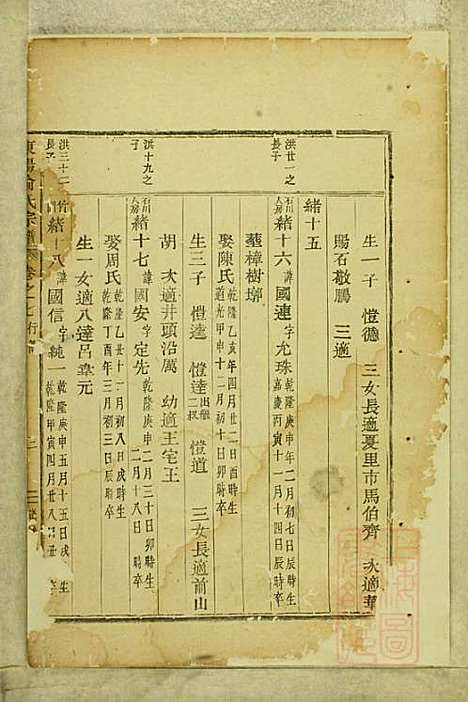 生一子 愷德 三女長適夏里市馬伯齊 次適華
陽石敬鵬 三適
緒十五
洪廿一之長子
緒十六 諱國連 字允珠 乾隆庚申年二月初七日辰時生 嘉慶丙寅十一月十四日辰時卒
娶陳氏 乾隆乙亥年四月廿二日酉時生 道光甲申十二月初十日卯時卒
葬樟樹塢
生三子 愷逵 愷達 出繼二叔 愷道 三女長適前山
胡 次適井頭沿厲 幼適王宅王
洪十九之子
緒十七 諱國安 字定先 乾隆庚申二月三十日卯時生 二月十八日 時卒
娶周氏 乾隆乙丑十一月初八日戌時生 乾隆丁酉年三月初三日辰時卒
生一女適八達呂堯元
洪三十二 長子
緒十八 諱國信 字純一 乾隆庚申五月十五日戌 生 乾隆甲寅四月廿八日丑
東陽俞氏宗譜 卷之